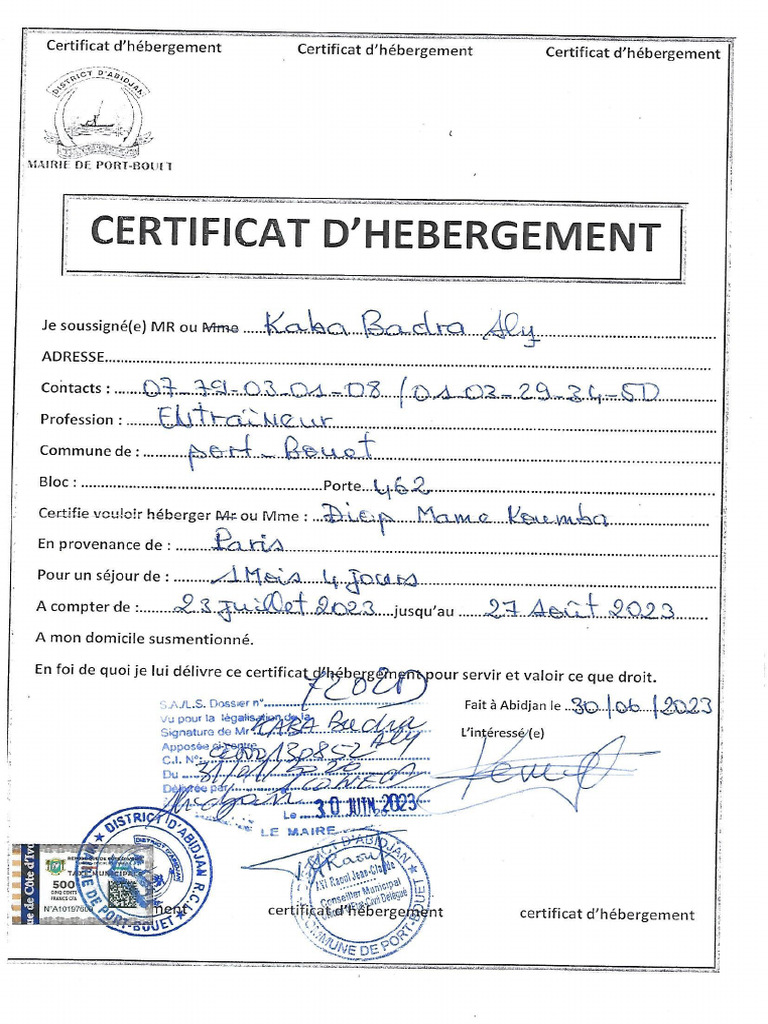 Certificat d'hébergement Certificat d'hébergement Certificat d'hébergement
DISTRICT D'ABIDJAN
MAIRIE DE PORT-BOUET
CERTIFICAT D'HEBERGEMENT
Je soussigné(e) MR ou Mme Kaba Badra Aly
ADRESSE
Contacts : 07-79-03-01-08 / 01-02-29-34-50
Profession : ENtraîneur
Commune de : port-Bouet
Bloc : Porte 462
Certifie vouloir héberger Mr ou Mme : Diop Mame Koumba
En provenance de : Paris
Pour un séjour de : 1 Mois 4 jours
A compter de : 23 juillet 2023 jusqu'au 27 Août 2023
A mon domicile susmentionné.
En foi de quoi je lui délivre ce certificat d'hébergement pour servir et valoir ce que droit.
S.A./L.S. Dossier n°
Fait à Abidjan le 30/06/2023
Vu pour la légalisation de la
Signature de Mr KABA Badra Aly
L'intéressé (e)
Apposée ci-contre
C.I. N°
Du
Délivrée par
Le 30 JUIN 2023
LE MAIRE
DISTRICT D'ABIDJAN R.C.I.
MAIRIE DE PORT-BOUET
DISTRICT D'ABIDJAN
Raoul Jean-Claude
Conseiller Municipal
Civil Délégué
COMMUNE DE PORT-BOUET
ue de Côte d'Ivo
500
CINQ CENTS
FRANCS CFA
certificat d'hébergement certificat d'hébergement